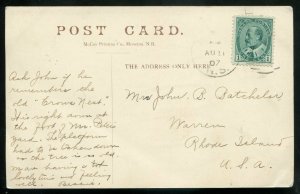 POST CARD.
McCoy Printing Co., Moncton, N.B.
THE ADDRESS ONLY HERE
AU 11
07
N.S.
Ask John if he
remembers the
old "Crows Nest".
It is right down at
the foot of Mr.
yard. The platform
had to be taken down
as the tree is so old.
Man having a
lovely time not feeling
well. Bessie.
Mrs John. B. Batchelor
Warren
Rhode Island
U.S.A.